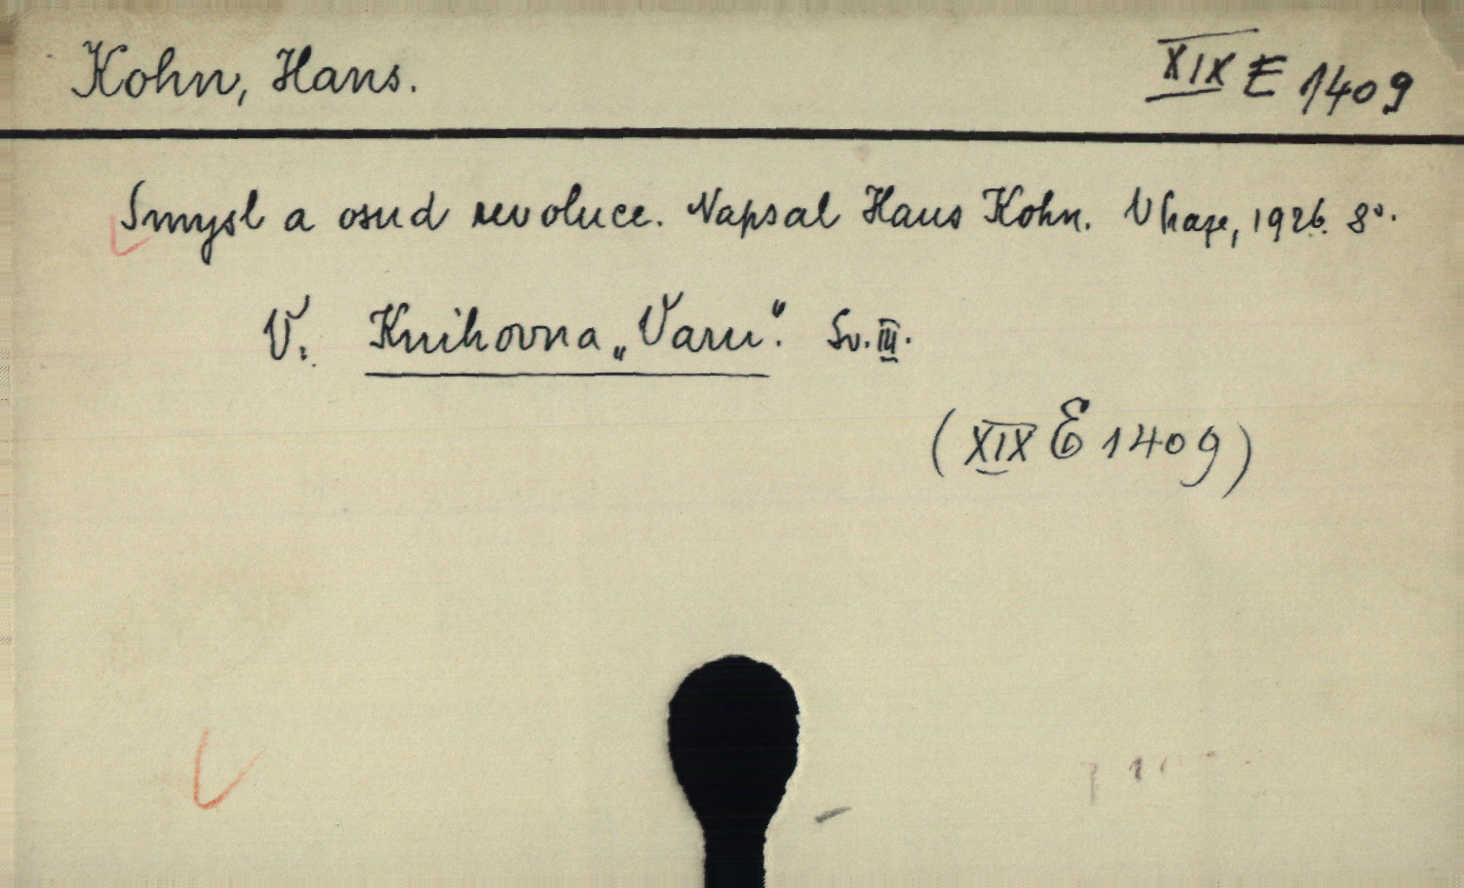 Kohn, Hans. XIX E 1409
Smysl a osud revoluce. Napsal Hans Kohn. V Praze, 1926. 8°.
V. Knihovna „Varu“. Sv. III.
(XIX E 1409)